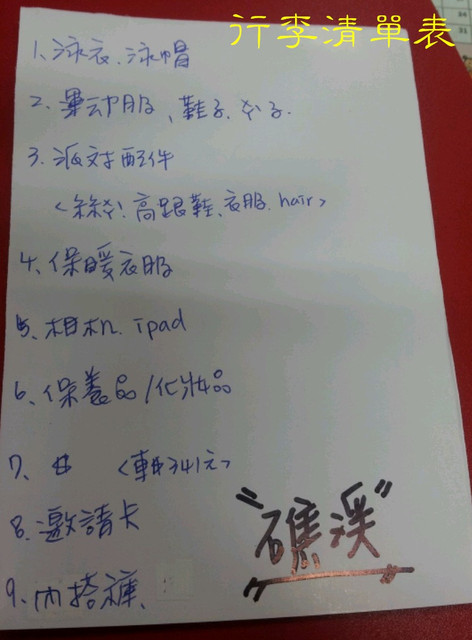 行李清單表
1、泳衣、泳帽
2、運动服、鞋子、
3、派对配件
高跟鞋、衣服、hair>
4、保暖衣服
5、相机、ipad
6、保養品/化妝品
7、 <車 341元>
8、邀請卡
9、內搭褲、
"礁溪"